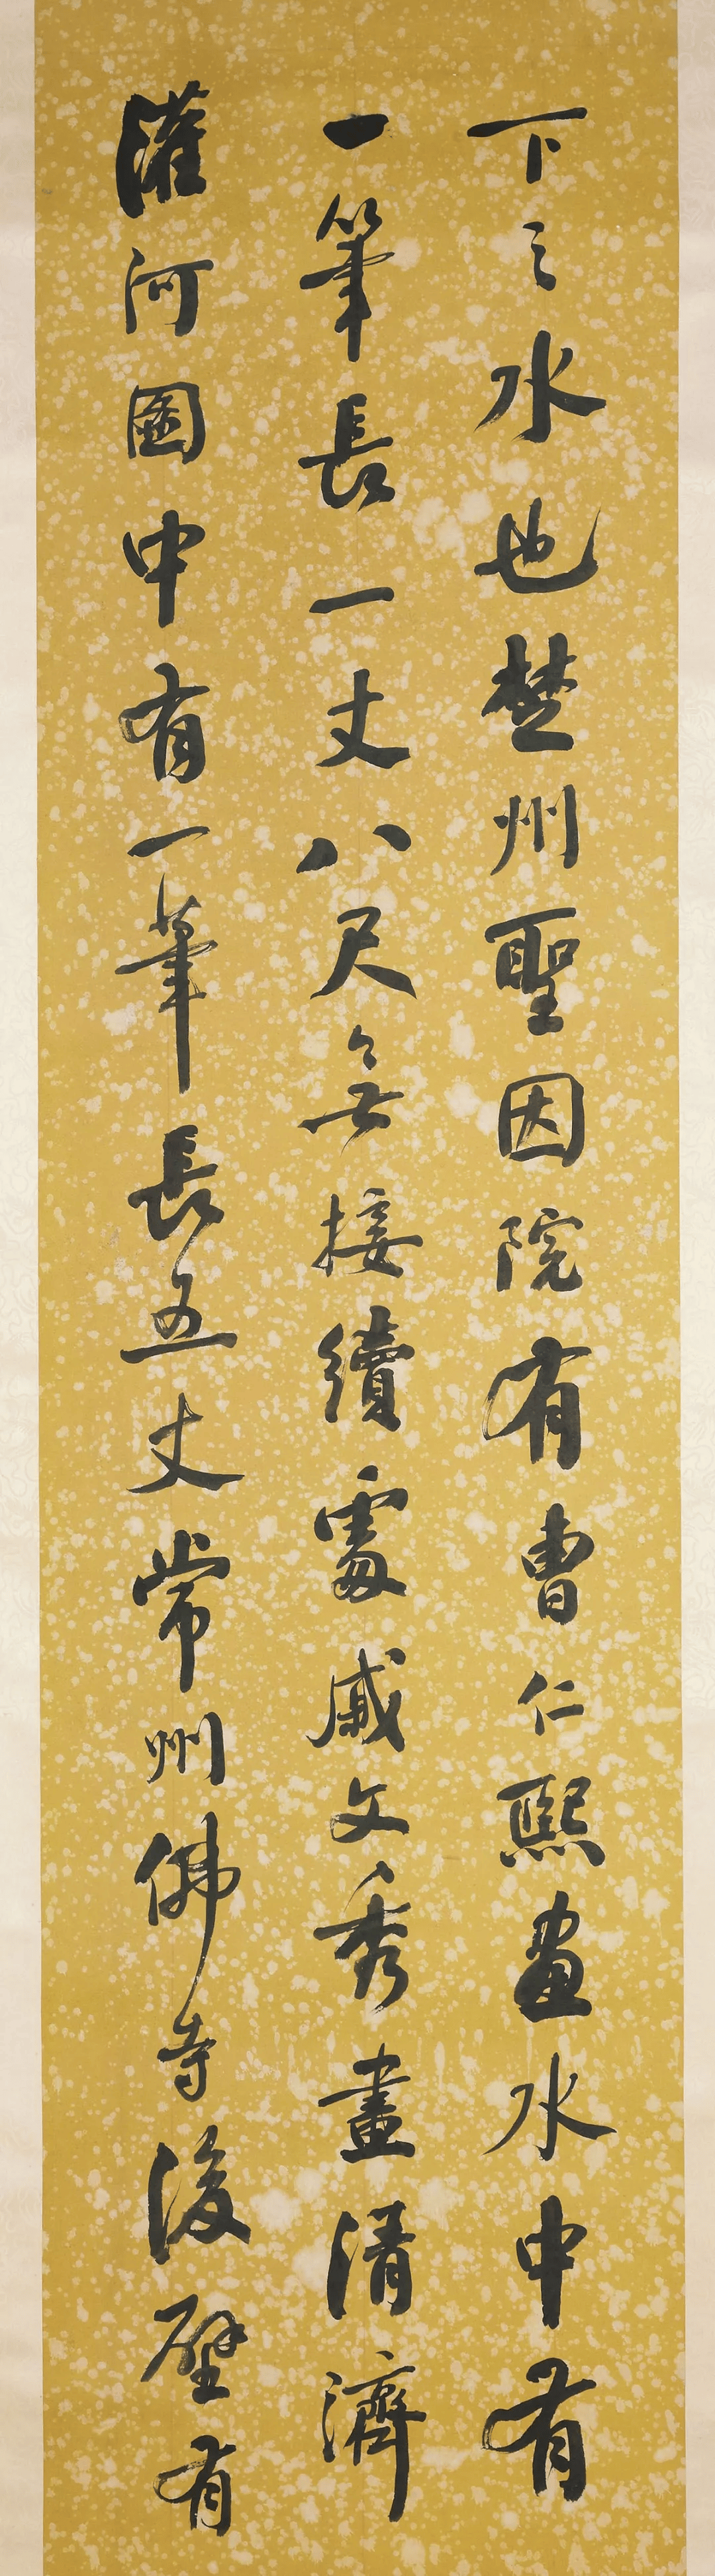 下之水也楚州聖因院有曹仁熙畫水中有
一筆長一丈八尺無接續處戚文秀畫清濟
灌河圖中有一筆長五丈常州佛寺後壁有